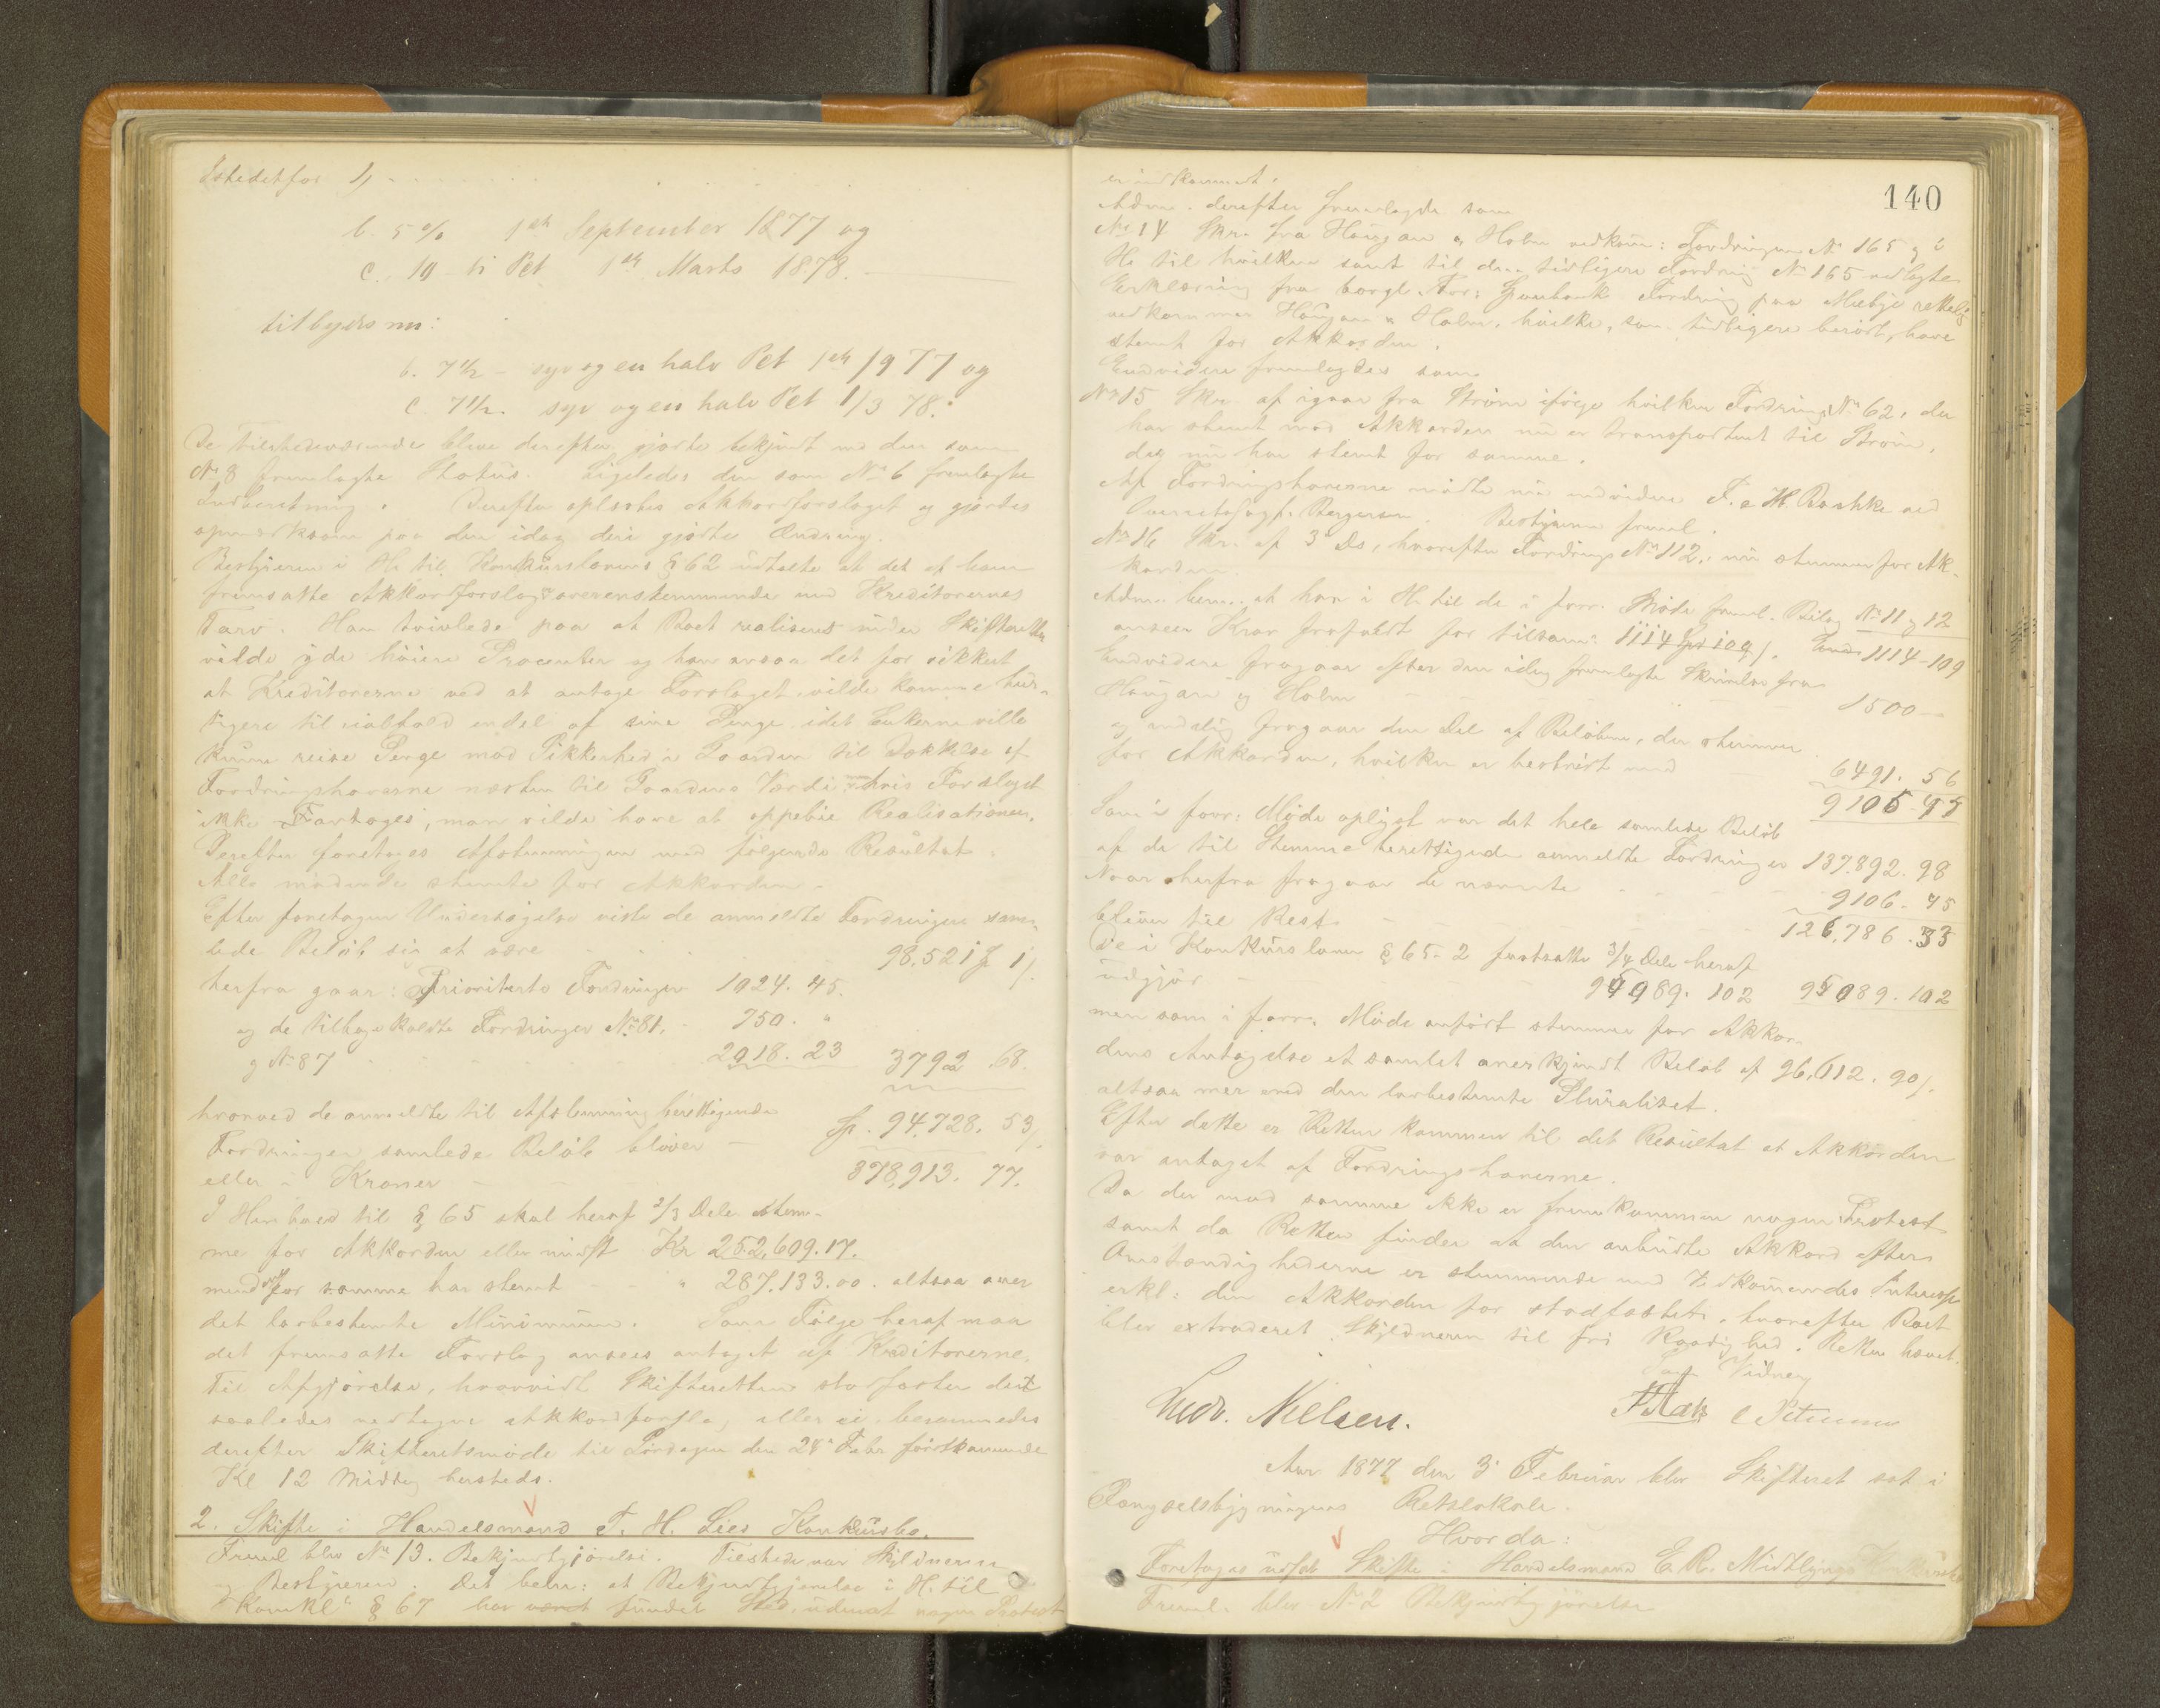 Istedetfor 1)
b. 5 % 1ste September 1877 og
c. 10 - ti Pct 1ste Marts 1878.
tilbydes nu:
b. 7½ - syv og en halv Pct 1ste /9 77 og
c. 7½. syv og en halv Pct 1/3 78.
De Tilstedeværende bleve derefter gjorte bekjendt med den som
No 8 fremlagte Status. Ligeledes den som No 6 fremlagte
Indberetning. Derefter oplæstes Akkordforslaget og gjordes
opmærksom paa den idag deri gjorte Ændring.
Bestyreren i H. til Konkurslovens § 62 udtalte at det af ham
fremsatte Akkordforslag overensstemmende med Kreditorernes
Tarv. Han tvivlede paa at Boet realiseret under Skifteretten
vilde yde høiere Procenter og han ansaa det for sikkert
at Kreditorerne ved at antage Forslaget vilde komme hur-
tigere til ialfald endel af sine Penge idet Enkerne ville
kunne reise Penge mod Sikkerhed i Gaarden til Dækkelse af
Fordringshaverne næsten til Gaardens Værdi hvis Forslaget
ikke antages, man vilde have at oppebie Realisationen.
Derefter foretoges Afstemningen med følgende Resultat.
Alle mødende stemte for Akkorden.
Efter foretagen Undersøgelse viste de anmeldte Fordringer sam-
lede Beløb sig at være 98,521 1/.
herfra gaar: Prioriterte Fordringer 1024. 45.
og de tilbagekaldte Fordringer No 81. 750. "
g No 87 2018. 23 3792 .68.
hvorved de anmeldte til Afstemning berettigende
Fordringer samlede Beløb bliver - Sp. 94,728. 53/.
eller i Kroner - 378,913. 77.
I Henhold til § 65 skal heraf 2/3 Dele stem-
me for Akkorden eller mindst Kr 252,609.17.
med for samme har stemt - " 287.133.00. altsaa over
det lovbestemte Minimum. Som Følge heraf maa
det fremsatte Forslag ansees antaget af Kreditorerne.
Til Afgjørelse, hvorvidt Skifteretten stadfæster det
saaledes vedtagne Akkordforslag eller ei berammedes
derefter Skifteretsmøde til Lørdagen den 24de Febr førstkommende
Kl 12 Middag hersteds.
2. Skifte i Handelsmand T. H. Lies Konkursbo.
Freml blev No 13. Bekjendtgjørelse. Tilstede var Skyldneren
og Bestyreren. Det bem: at Bekjendtgjørelse i H. til
Konkl § 67 har været fundet Sted, uden at nogen Protest
140
er indkommet.
Adm. derefter fremlagde som
No 14 Skr. fra Haugan & Holm vedkom: Fordringen No 165 g i
H. til hvilken samt til den tidligere Fordring No 165 vedlagte
Erklæring fra borgl. For: Sparebank Fordring paa Melbye rettelig
vedkommer Haugan & Holm, hvilke, som tidligere berørt, have
stemt for Akkorden.
Endvidere fremlagdes som
No 15 Skr. af igaar fra Strøm ifølge hvilken Fordring No 62, der
har stemt mod Akkorden nu er transporteret til Strøm,
der nu har stemt for samme.
Af Fordringshaverne mødte nu endvidere F. & H. Bashke ved
Overretssagf. Bergersen. Bestyreren freml.
No 16 Skr. af 3 ds, hvorefter Fordring No 112, nu stemmer for Ak-
korden
Adm. bem. at han i H. til de i forr. Møde freml. Bilag No 11 g 12
anseer Krav frafaldt for tilsam: 1114 Sp 109/. 1114-109
Endvidere fragaar efter den idag fremlagte Skrivelse fra
Haugan og Holm 1500 -
og endelig fragaar den Del af Beløbene, der stemmer
for Akkorden, hvilken er bestridt med 6491. 56
9106-45
Som i forr: Møde oplyst var det hele samlede Beløb
af de til Stemme berettigede anmeldte Fordringer 137.892. 98
Naar herfra fragaar de nævnte 9106- 45
bliver til Rest 126,786.33
De i Konkursloven § 65-2 fastsatte 3/4 Dele heraf
udgjør - 95089. 102 95089. 102
men som i forr. Møde anført stemmer for Akkor-
dens Antagelse et samlet anerkjendt Beløb af 96,112. 90/.
altsaa mer end den lovbestemte Pluralitet.
Efter dette er Retten kommen til det Resultat at Akkorden
var antaget af Fordringshaverne.
Da der mod samme ikke er fremkommen nogen Protest
samt da Retten finder at den anbudte Akkord efter
Omstændighederne er stemmende med Vedkommendes Interesse
erkl: den Akkorden for stadfæstet, hvorefter Boet
blev extraderet Skyldneren til fri Raadighed. Retten hævet.
Som Vidner
Ludv. Nielsen. C Petersen
Aar 1877 den 3 Februar blev Skifteret sat i
Fængselsbygningens Retslokale.
Hvor da:
Foretoges udsat Skifte i Handelsmand E. R. Midtlyngs Konkursbo
Freml. blev No 2 Bekjendtgjørelse